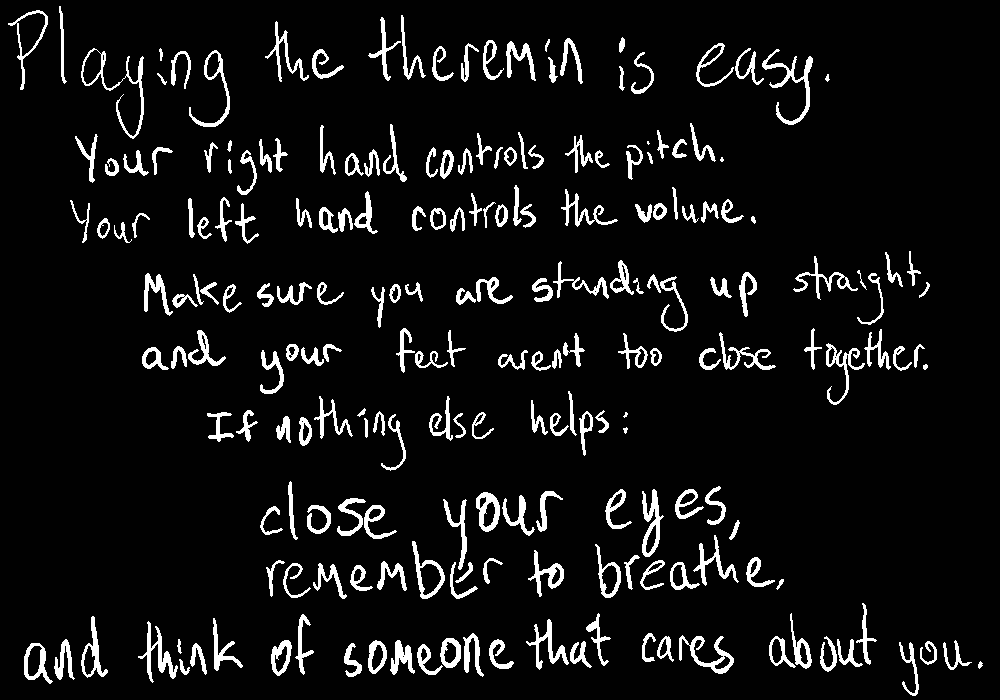 Playing the theremin is easy.
Your right hand controls the pitch.
Your left hand controls the volume.
Make sure you are standing up straight,
and your feet aren't too close together.
If nothing else helps:
close your eyes,
remember to breathe,
and think of someone that cares about you.